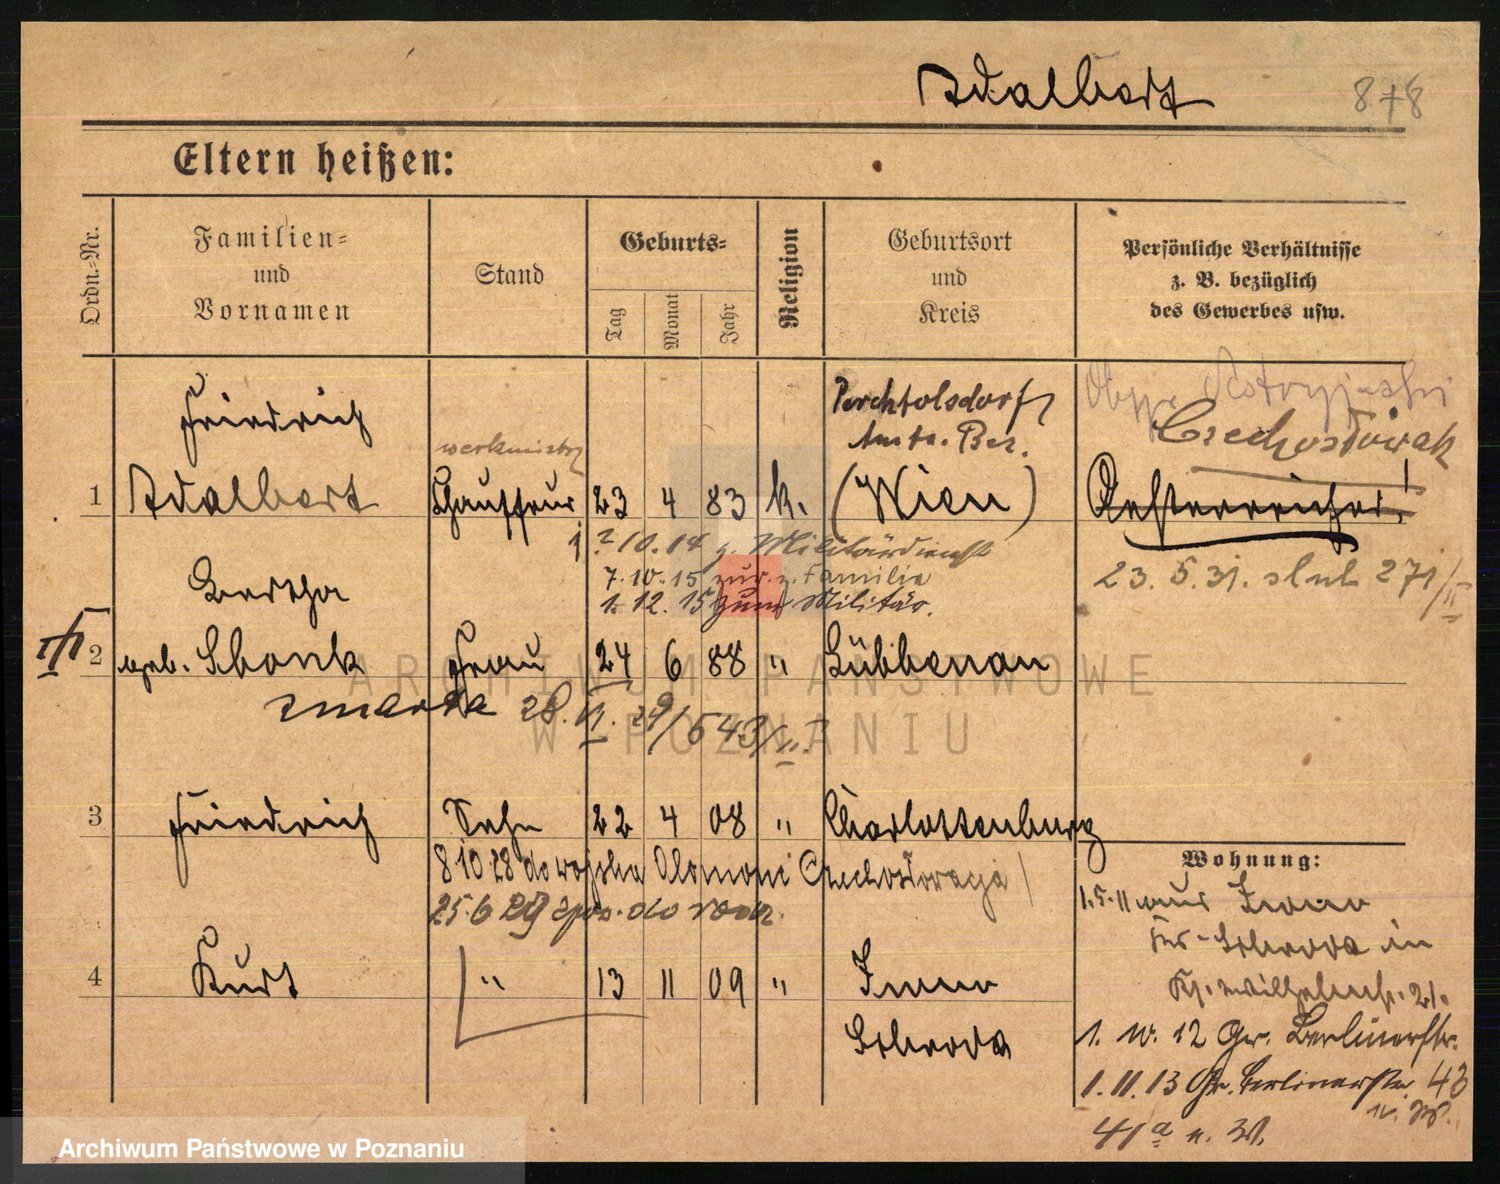 Adalbert
Eltern heißen:
Ordn.-Nr.
Familien-
und
Vornamen
Stand
Geburts-
Tag
Monat
Jahr
Religion
Geburtsort
und
Kreis
Persönliche Verhältnisse
z. B. bezüglich
des Gewerbes usw.
Friedrich
Perchtolsdorf
Amts. Bez.
Czechosłowak
1 Adalbert Chauffeur 23 4 83 k. (Wien) Oesterreicher!
10.14 z. Militärdienst
7.10.15 zur. z. Familie
1.12.15 zum Militär.
23.5.31. ślub 271/II
Bertha
2 geb. Schonk Frau 24 6 88 " Lübbenau
zmarła 28.VI.29/543/II.
3 Friedrich Sohn 22 4 08 " Charlottenburg
8 10 28 do wojska Ołomoni Czechosłowacja
25 6 29 do
Wohnung:
1.5.11 aus
Schroda in
4 Kurt " 13 11 09 "
Wilhelmstr. 21.
Schroda
1. 10. 12 Gr. Berlinerstr.
1. 11. 13 Gr. Berlinerstr. 43
41a n. W.
ARCHIWUM PAŃSTWOWE
W POZNANIU
Archiwum Państwowe w Poznaniu